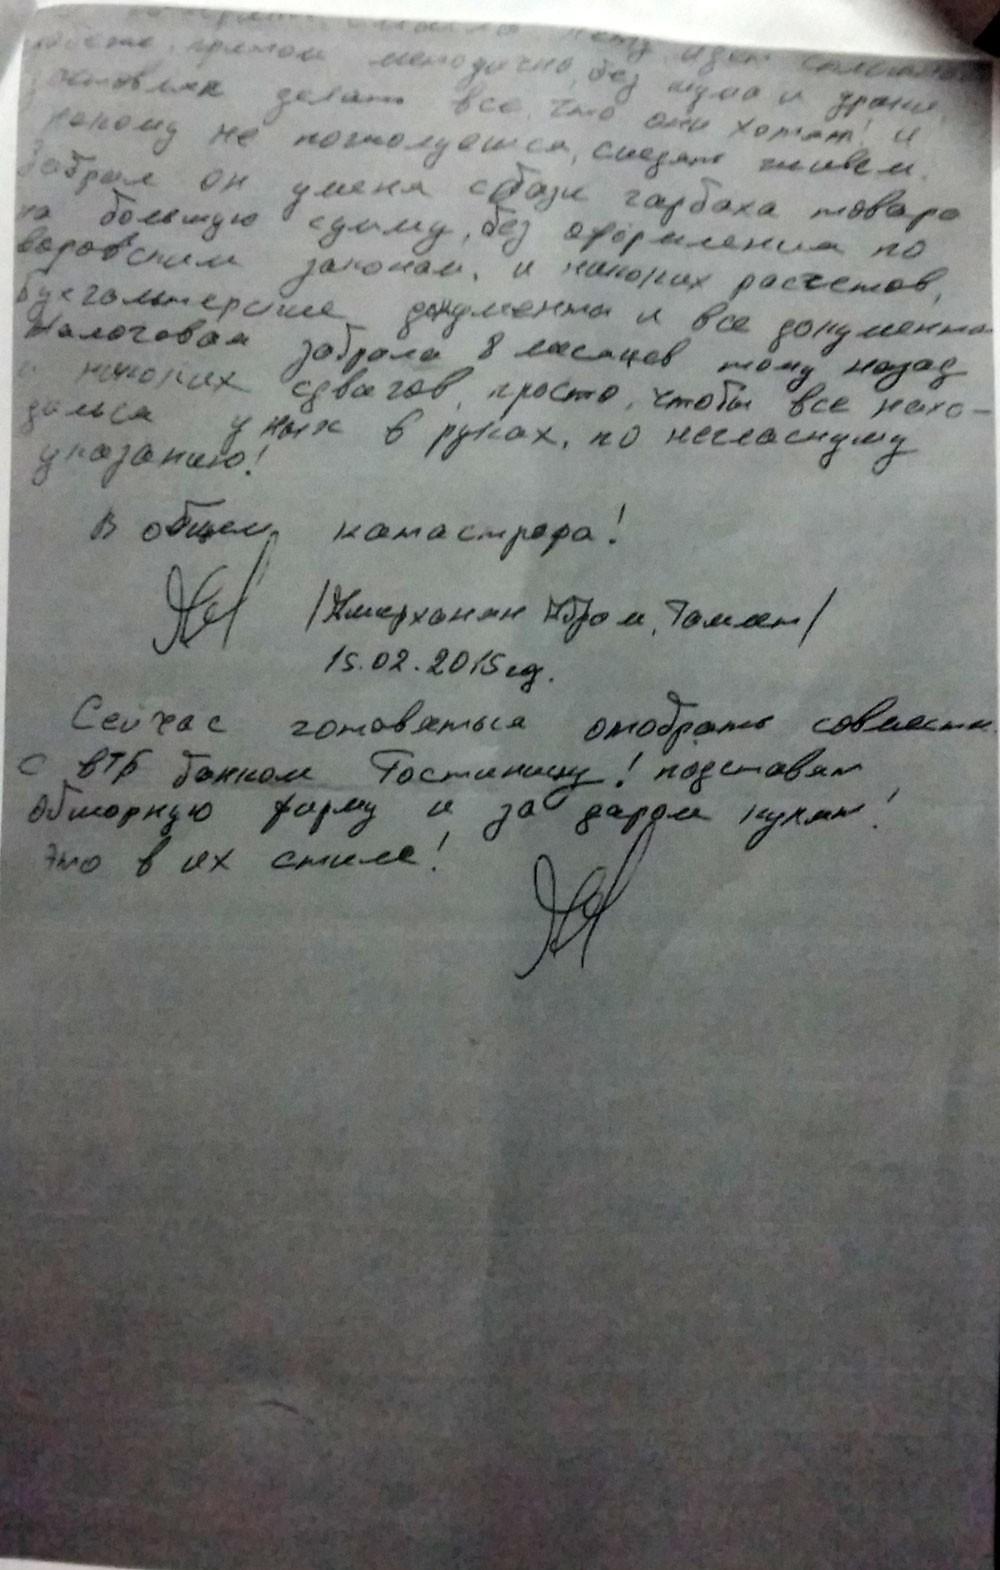 методично, без шума и драки,
делать все, что они хотят! и
никому не пожалуешся, съедят живем.
Забрал он у меня с базы гарбаха товара
на большую сумму, без оформления по
воровским законам, и никаких расчетов,
бухгалтерские документы и все документы
Налоговая забрала 8 месяцев тому назад
и никоких сдвигов, просто, чтобы все нахо-
дилься у них в руках, по негласному
указанию!
В общем, катастрофа!
/Амерханян Абрам,
15.02.2015 гд.
Сейчас готовяться отобрать совместн.
с ВТБ банком Гостиницу! подставят
обморную фирму и за даром купят!
это в их стиле!